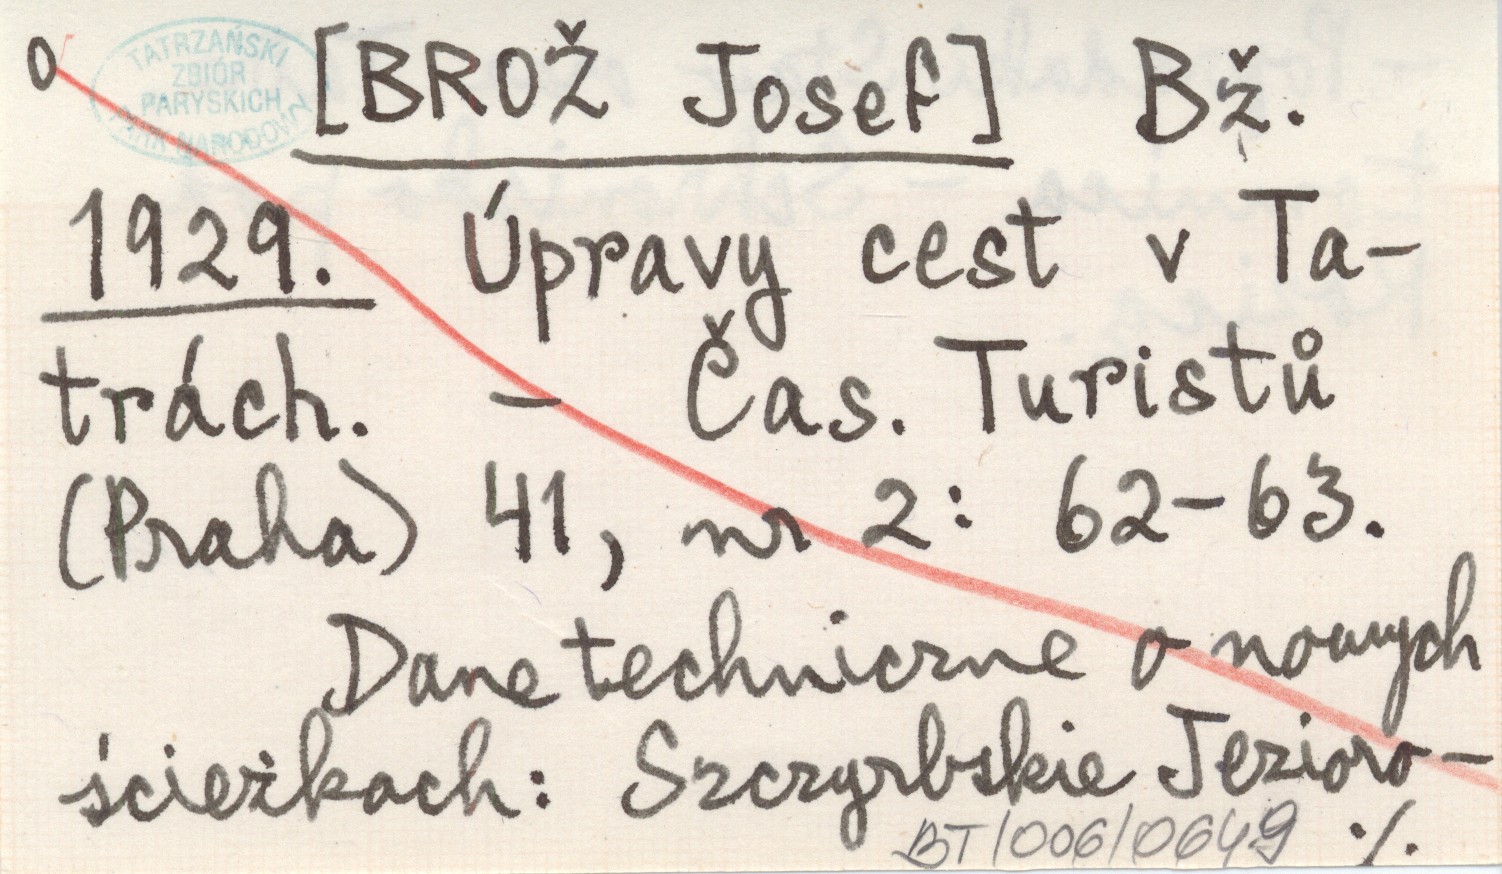 o
TATRZAŃSKI
ZBIÓR
PARYSKICH
NARODOWY
[BROŽ Josef] Bž.
1929. Úpravy cest v Ta-
trách. – Čas. Turistů
(Praha) 41, nr 2: 62–63.
Dane techniczne o nowych
ścieżkach: Szczyrbskie Jezioro–
BT/006/0649 ./.